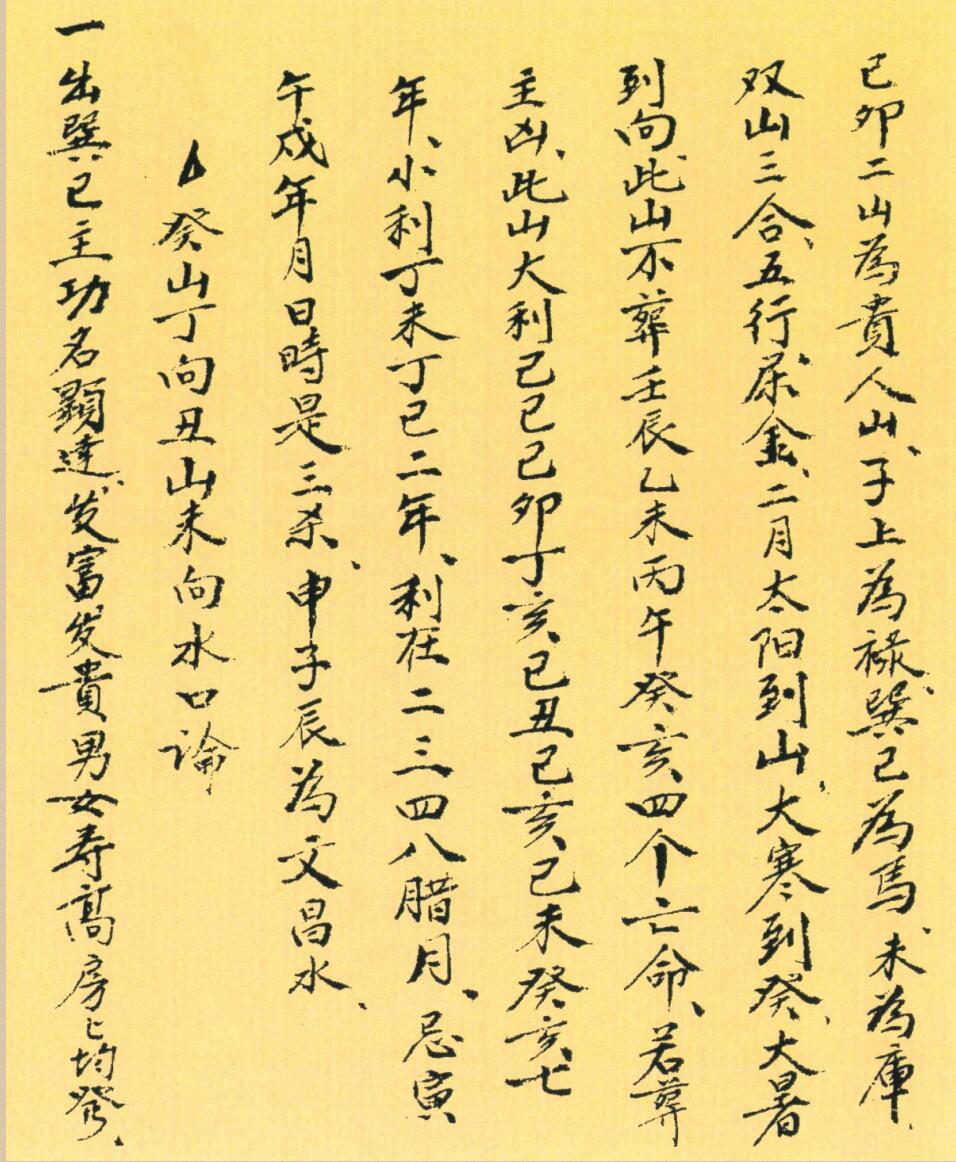 已卯二山為貴人山、子上為祿、巽巳為馬、未為庫、
双山三合、五行属金、二月太阳到山、大寒到癸、大暑
到向、此山不葬壬辰乙未丙午癸亥、四个亡命、若葬
主凶、此山大利己巳己卯丁亥、己丑己亥、己未癸亥、七
年、小利丁未丁巳二年、利在二三四八腊月、忌寅
午戌年月日時是三杀、申子辰為文昌水、
癸山丁向丑山未向水口論
一出巽巳主功名顯達、发富发貴男女寿高房々均發、